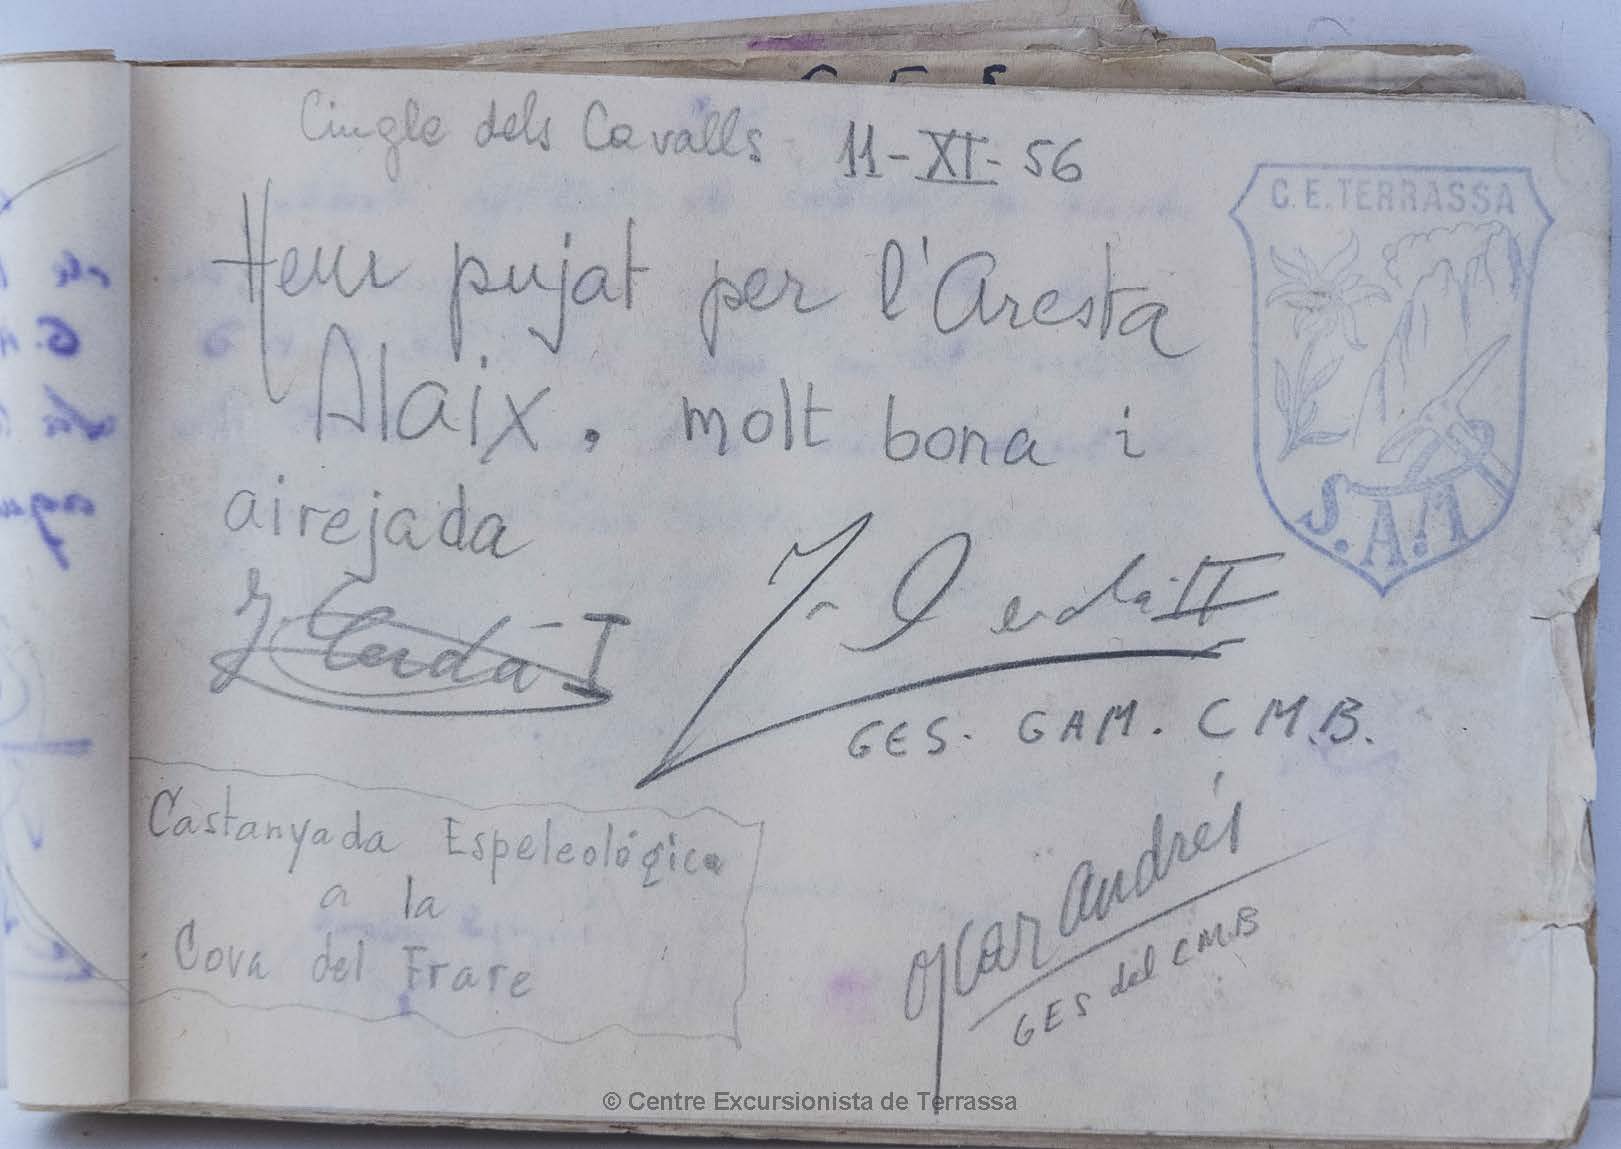 Cingle dels Cavalls 11-XI-56
Hem pujat per l'Aresta
Alaix, molt bona i
airejada
J. Cerdá I
J. Cerdá II
GES. GAM. C.M.B.
Castanyada Espeleológica
a la
Cova del Frare
Oscar Andrés
GES del C.M.B
C.E. TERRASSA
S.A.M
© Centre Excursionista de Terrassa